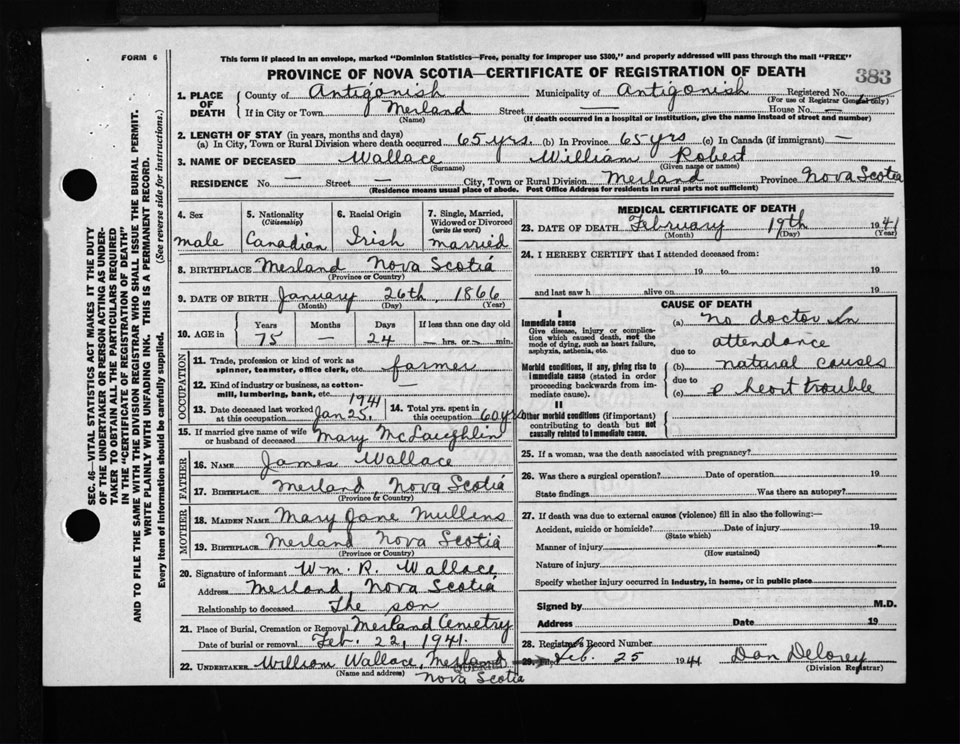 FORM 6
This form if placed in an envelope, marked "Dominion Statistics—Free, penalty for improper use $300," and properly addressed will pass through the mail "FREE"
PROVINCE OF NOVA SCOTIA—CERTIFICATE OF REGISTRATION OF DEATH
383
1. PLACE OF DEATH
County of Antigonish Municipality of Antigonish Registered No.
(For use of Registrar General only)
If in City or Town Merland Street — House No. —
(Name) (If death occurred in a hospital or institution, give the name instead of street and number)
2. LENGTH OF STAY (in years, months and days)
(a) In City, Town or Rural Division where death occurred 65 yrs. (b) In Province 65 yrs (c) In Canada (if immigrant) —
3. NAME OF DECEASED Wallace William Robert
(Surname) (Given name or names)
RESIDENCE No. — Street — City, Town or Rural Division Merland Province Nova Scotia
(Residence means usual place of abode. Post Office Address for residents in rural parts not sufficient)
4. Sex
male
5. Nationality
(Citizenship)
Canadian
6. Racial Origin
Irish
7. Single, Married, Widowed or Divorced
(write the word)
married
8. BIRTHPLACE Merland Nova Scotia
(Province or Country)
9. DATE OF BIRTH January 26th, 1866
(Month) (Day) (Year)
10. AGE in
Years Months Days If less than one day old
75 — 24 — hrs. or — min.
OCCUPATION
11. Trade, profession or kind of work as
spinner, teamster, office clerk, etc. farmer
12. Kind of industry or business, as cotton-
mill, lumbering, bank, etc. —
13. Date deceased last worked at this occupation Jan 25, 1941
14. Total yrs. spent in this occupation 60 yrs
15. If married give name of wife
or husband of deceased Mary McLaughlin
FATHER
16. NAME James Wallace
17. BIRTHPLACE Merland, Nova Scotia
(Province or Country)
MOTHER
18. MAIDEN NAME Mary Jane Mullens
19. BIRTHPLACE Merland Nova Scotia
(Province or Country)
20. Signature of informant Wm. R. Wallace
Address Merland, Nova Scotia
Relationship to deceased The son
21. Place of Burial, Cremation or Removal Merland Cemetry
Date of burial or removal Feb. 22, 1941.
22. UNDERTAKER William Wallace, Merland
(Name and address) Nova Scotia
QUERIED
MEDICAL CERTIFICATE OF DEATH
23. DATE OF DEATH February 19th 1941
(Month) (Day) (Year)
24. I HEREBY CERTIFY that I attended deceased from:
19 to 19
and last saw h alive on 19
CAUSE OF DEATH
I
Immediate cause
Give disease, injury or complica-
tion which caused death, not the
mode of dying, such as heart failure,
asphyxia, asthenia, etc.
(a) no doctor in
attendance
due to
Morbid conditions, if any, giving rise to
immediate cause (stated in order
proceeding backwards from im-
mediate cause).
(b) natural causes
due to
(c) heart trouble
II
Other morbid conditions (if important)
contributing to death but not
causally related to immediate cause.
25. If a woman, was the death associated with pregnancy?
26. Was there a surgical operation? Date of operation 19
State findings Was there an autopsy?
27. If death was due to external causes (violence) fill in also the following:—
Accident, suicide or homicide? Date of injury 19
(State which)
Manner of injury
(How sustained)
Nature of injury
Specify whether injury occurred in industry, in home, or in public place
Signed by M.D.
Address Date 19
28. Registrar's Record Number
29. Filed Feb. 25 1941 Dan Delorey
(Division Registrar)
SEC. 46—VITAL STATISTICS ACT MAKES IT THE DUTY
OF THE UNDERTAKER OR PERSON ACTING AS UNDER-
TAKER TO OBTAIN ALL THE PARTICULARS REQUIRED
IN THE "CERTIFICATE OF REGISTRATION OF DEATH"
AND TO FILE THE SAME WITH THE DIVISION REGISTRAR WHO SHALL ISSUE THE BURIAL PERMIT.
WRITE PLAINLY WITH UNFADING INK. THIS IS A PERMANENT RECORD.
Every item of information should be carefully supplied. (See reverse side for instructions.)